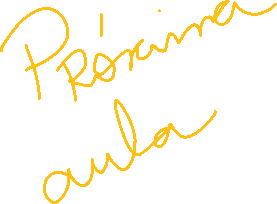 Próxima
aula